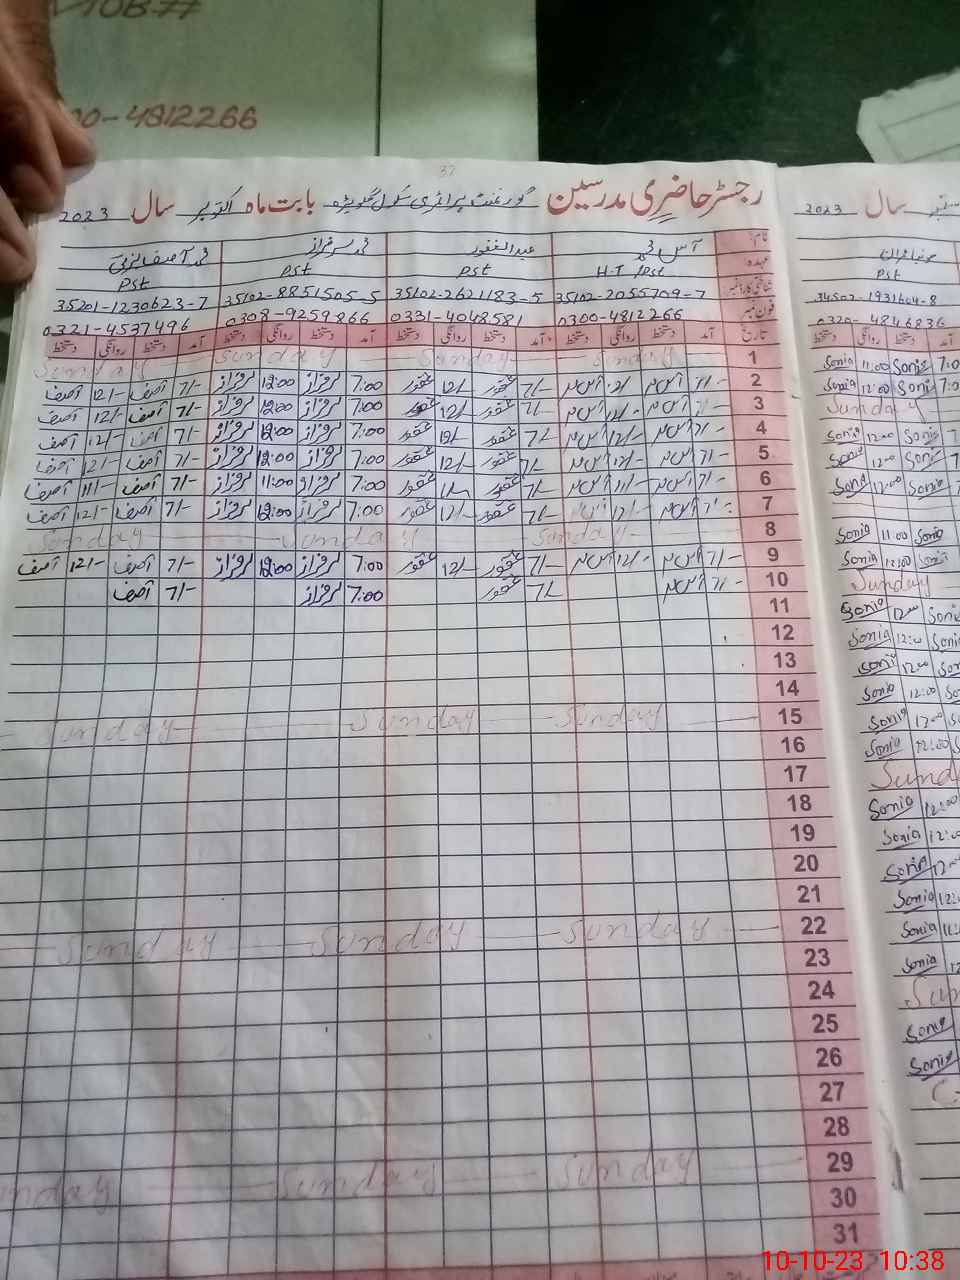 00-4812266
37
رجسٹر حاضری مدرسین گورنمنٹ پرائمری سکول بابت ماہ اکتوبر سال 2023
نام: عبدالغفور محمد سرفراز محمد آصف
عہدہ: H.T PST PST PST
شناختی کارڈ نمبر 35102-2055709-7 35102-2621183-5 35102-8851505-5 35201-1230623-7
فون نمبر 0300-4812266 0331-4048581 0308-9259866 0321-4537496
تاریخ آمد دستخط روانگی دستخط آمد دستخط روانگی دستخط آمد دستخط روانگی دستخط آمد دستخط روانگی دستخط
1 Sunday Sunday Sunday Sunday
2 7/- 7/- غفور 12/- غفور 7:00 سرفراز 12:00 سرفراز 7/- آصف 12/- آصف
3 7/- 7/- غفور 12/- غفور 7:00 سرفراز 12:00 سرفراز 7/- آصف 12/- آصف
4 7/- 12/- 7/- غفور 12/- غفور 7:00 سرفراز 12:00 سرفراز 7/- آصف 12/- آصف
5 7/- 12/- 7/- غفور 12/- غفور 7:00 سرفراز 12:00 سرفراز 7/- آصف 12/- آصف
6 7/- 11/- 7/- غفور غفور 7:00 سرفراز 11:00 سرفراز 7/- آصف 11/- آصف
7 12/- 7/- غفور 12/- غفور 7:00 سرفراز 12:00 سرفراز 7/- آصف 12/- آصف
8 Sunday Sunday Sunday
9 7/- 12/- 7/- غفور 12/- غفور 7:00 سرفراز 12:00 سرفراز 7/- آصف 12/- آصف
10 7/- 7/- غفور 7:00 سرفراز 7/- آصف
11
12
13
14
15 Sunday Sunday Sunday
16
17
18
19
20
21
22 Sunday Sunday Sunday
23
24
25
26
27
28
29 Sunday Sunday Sunday
30
31
سال 2023
PST
34502-1931604-8
0320-4846836
Sonia 11:00 Sonia 7:0
Sonia 12:00 Sonia 7:0
Sunday
Sonia 12:00 Sonia 7
Sonia 12:00 Sonia 7
Sonia 12:00 Sonia 7
Sonia 11:00 Sonia
Sonia 12:00 Sonia
Sunday
Sonia 12:00 Sonia
Sonia 12:00 Sonia
Sonia 12:00 Sonia
Sonia 12:00
Sonia 12:00
Sonia 12:00
Sunda
Sonia 12:00
Sonia 12:0
Sonia 12:0
Sonia
Sonia
Sonia 12
Sun
Sonia
Sonia
10-10-23 10:38